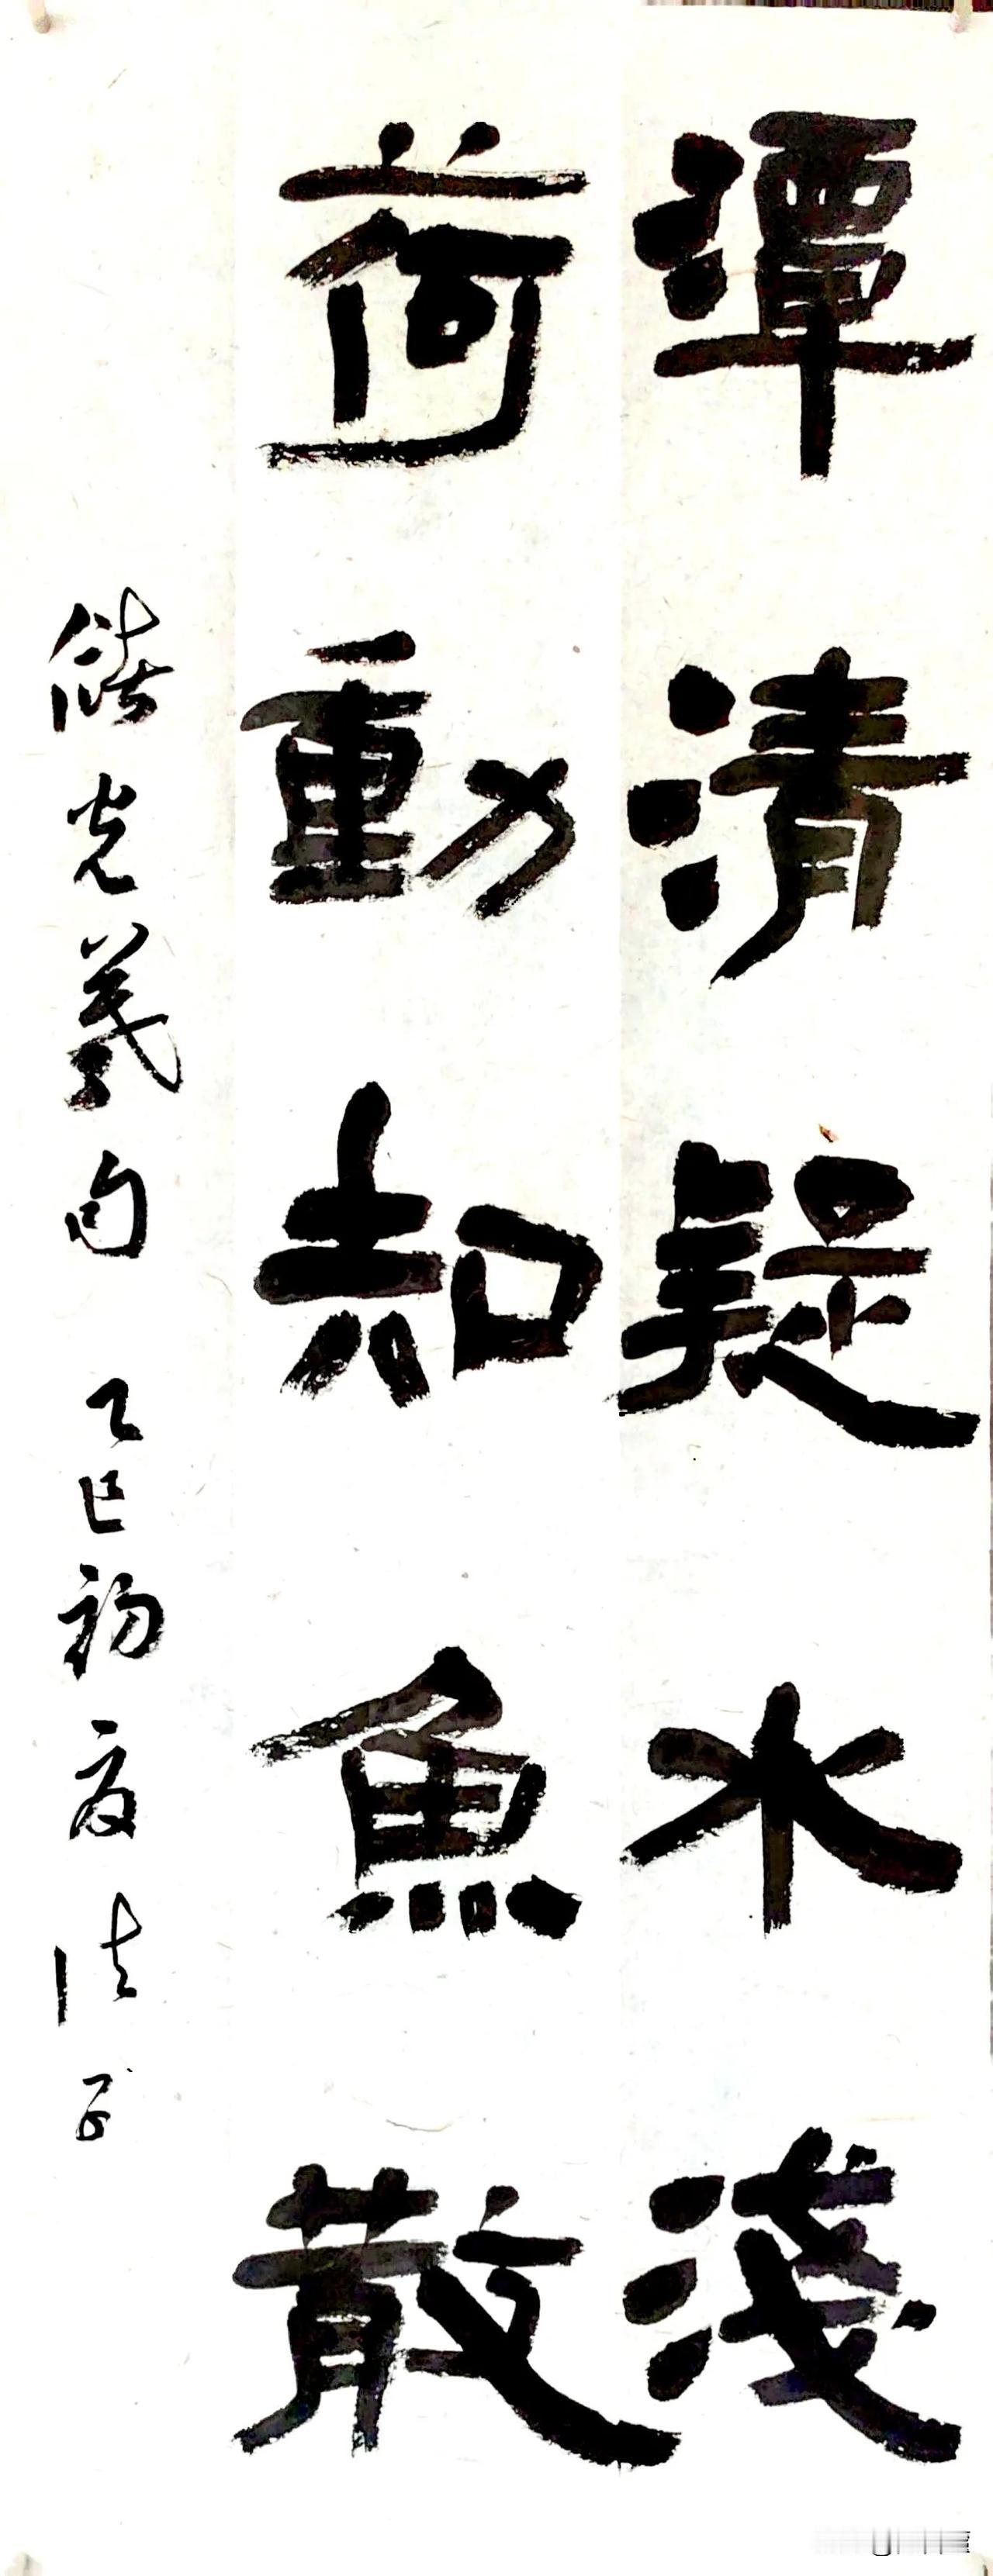 潭清疑水淺
荷動知魚散
儲光羲句 乙巳初夏